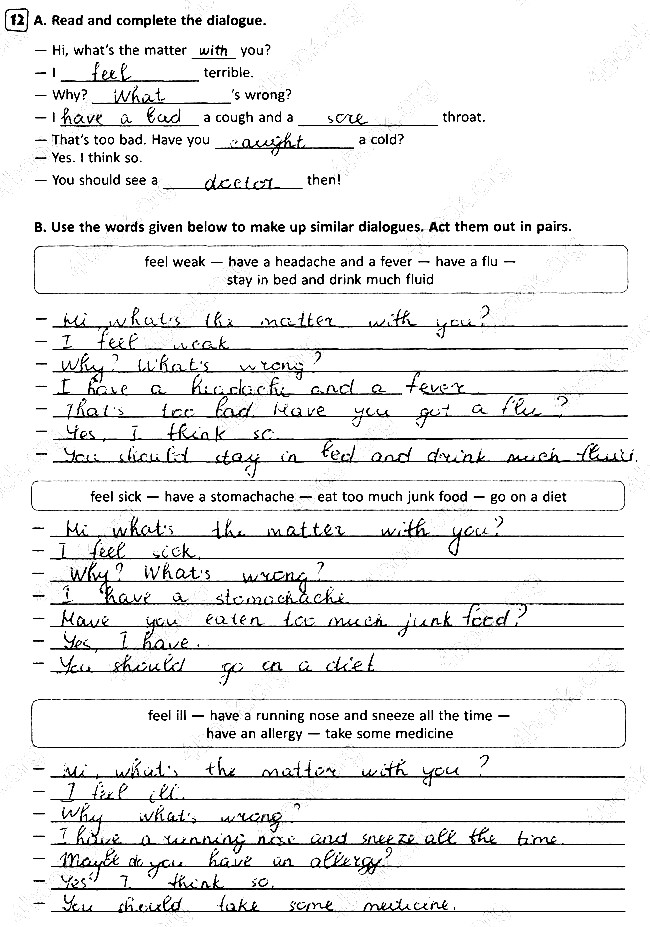 12 A. Read and complete the dialogue.
— Hi, what's the matter with you?
— I feel terrible.
— Why? What 's wrong?
— I have a bad a cough and a sore throat.
— That's too bad. Have you caught a cold?
— Yes. I think so.
— You should see a doctor then!
B. Use the words given below to make up similar dialogues. Act them out in pairs.
feel weak — have a headache and a fever — have a flu —
stay in bed and drink much fluid
— Hi, what's the matter with you?
— I feel weak
— Why? What's wrong?
— I have a headache and a fever
— That's too bad. Have you got a flu?
— Yes, I think so.
— You should stay in bed and drink much fluid.
feel sick — have a stomachache — eat too much junk food — go on a diet
— Hi, what's the matter with you?
— I feel sick.
— Why? What's wrong?
— I have a stomachache
— Have you eaten too much junk food?
— Yes, I have.
— You should go on a diet
feel ill — have a running nose and sneeze all the time —
have an allergy — take some medicine
— Hi, what's the matter with you?
— I feel ill.
— Why what's wrong?
— I have a running nose and sneeze all the time.
— Maybe do you have an allergy?
— Yes, I think so.
— You should take some medicine.